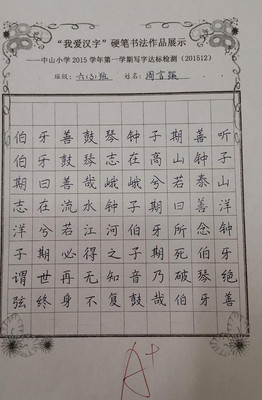 “我爱汉字”硬笔书法作品展示
——中山小学2015学年第一学期写字达标检测（201512）
班级：六(3)班 姓名：周言强
伯牙善鼓琴钟子期善听
伯牙鼓琴志在高山钟子
期曰善哉峨峨兮若泰山
志在流水钟子期曰善洋
洋兮若江河伯牙所念钟
子期必得之子期死伯牙
谓世再无知音乃破琴绝
弦终身不复鼓哉伯牙善
A+